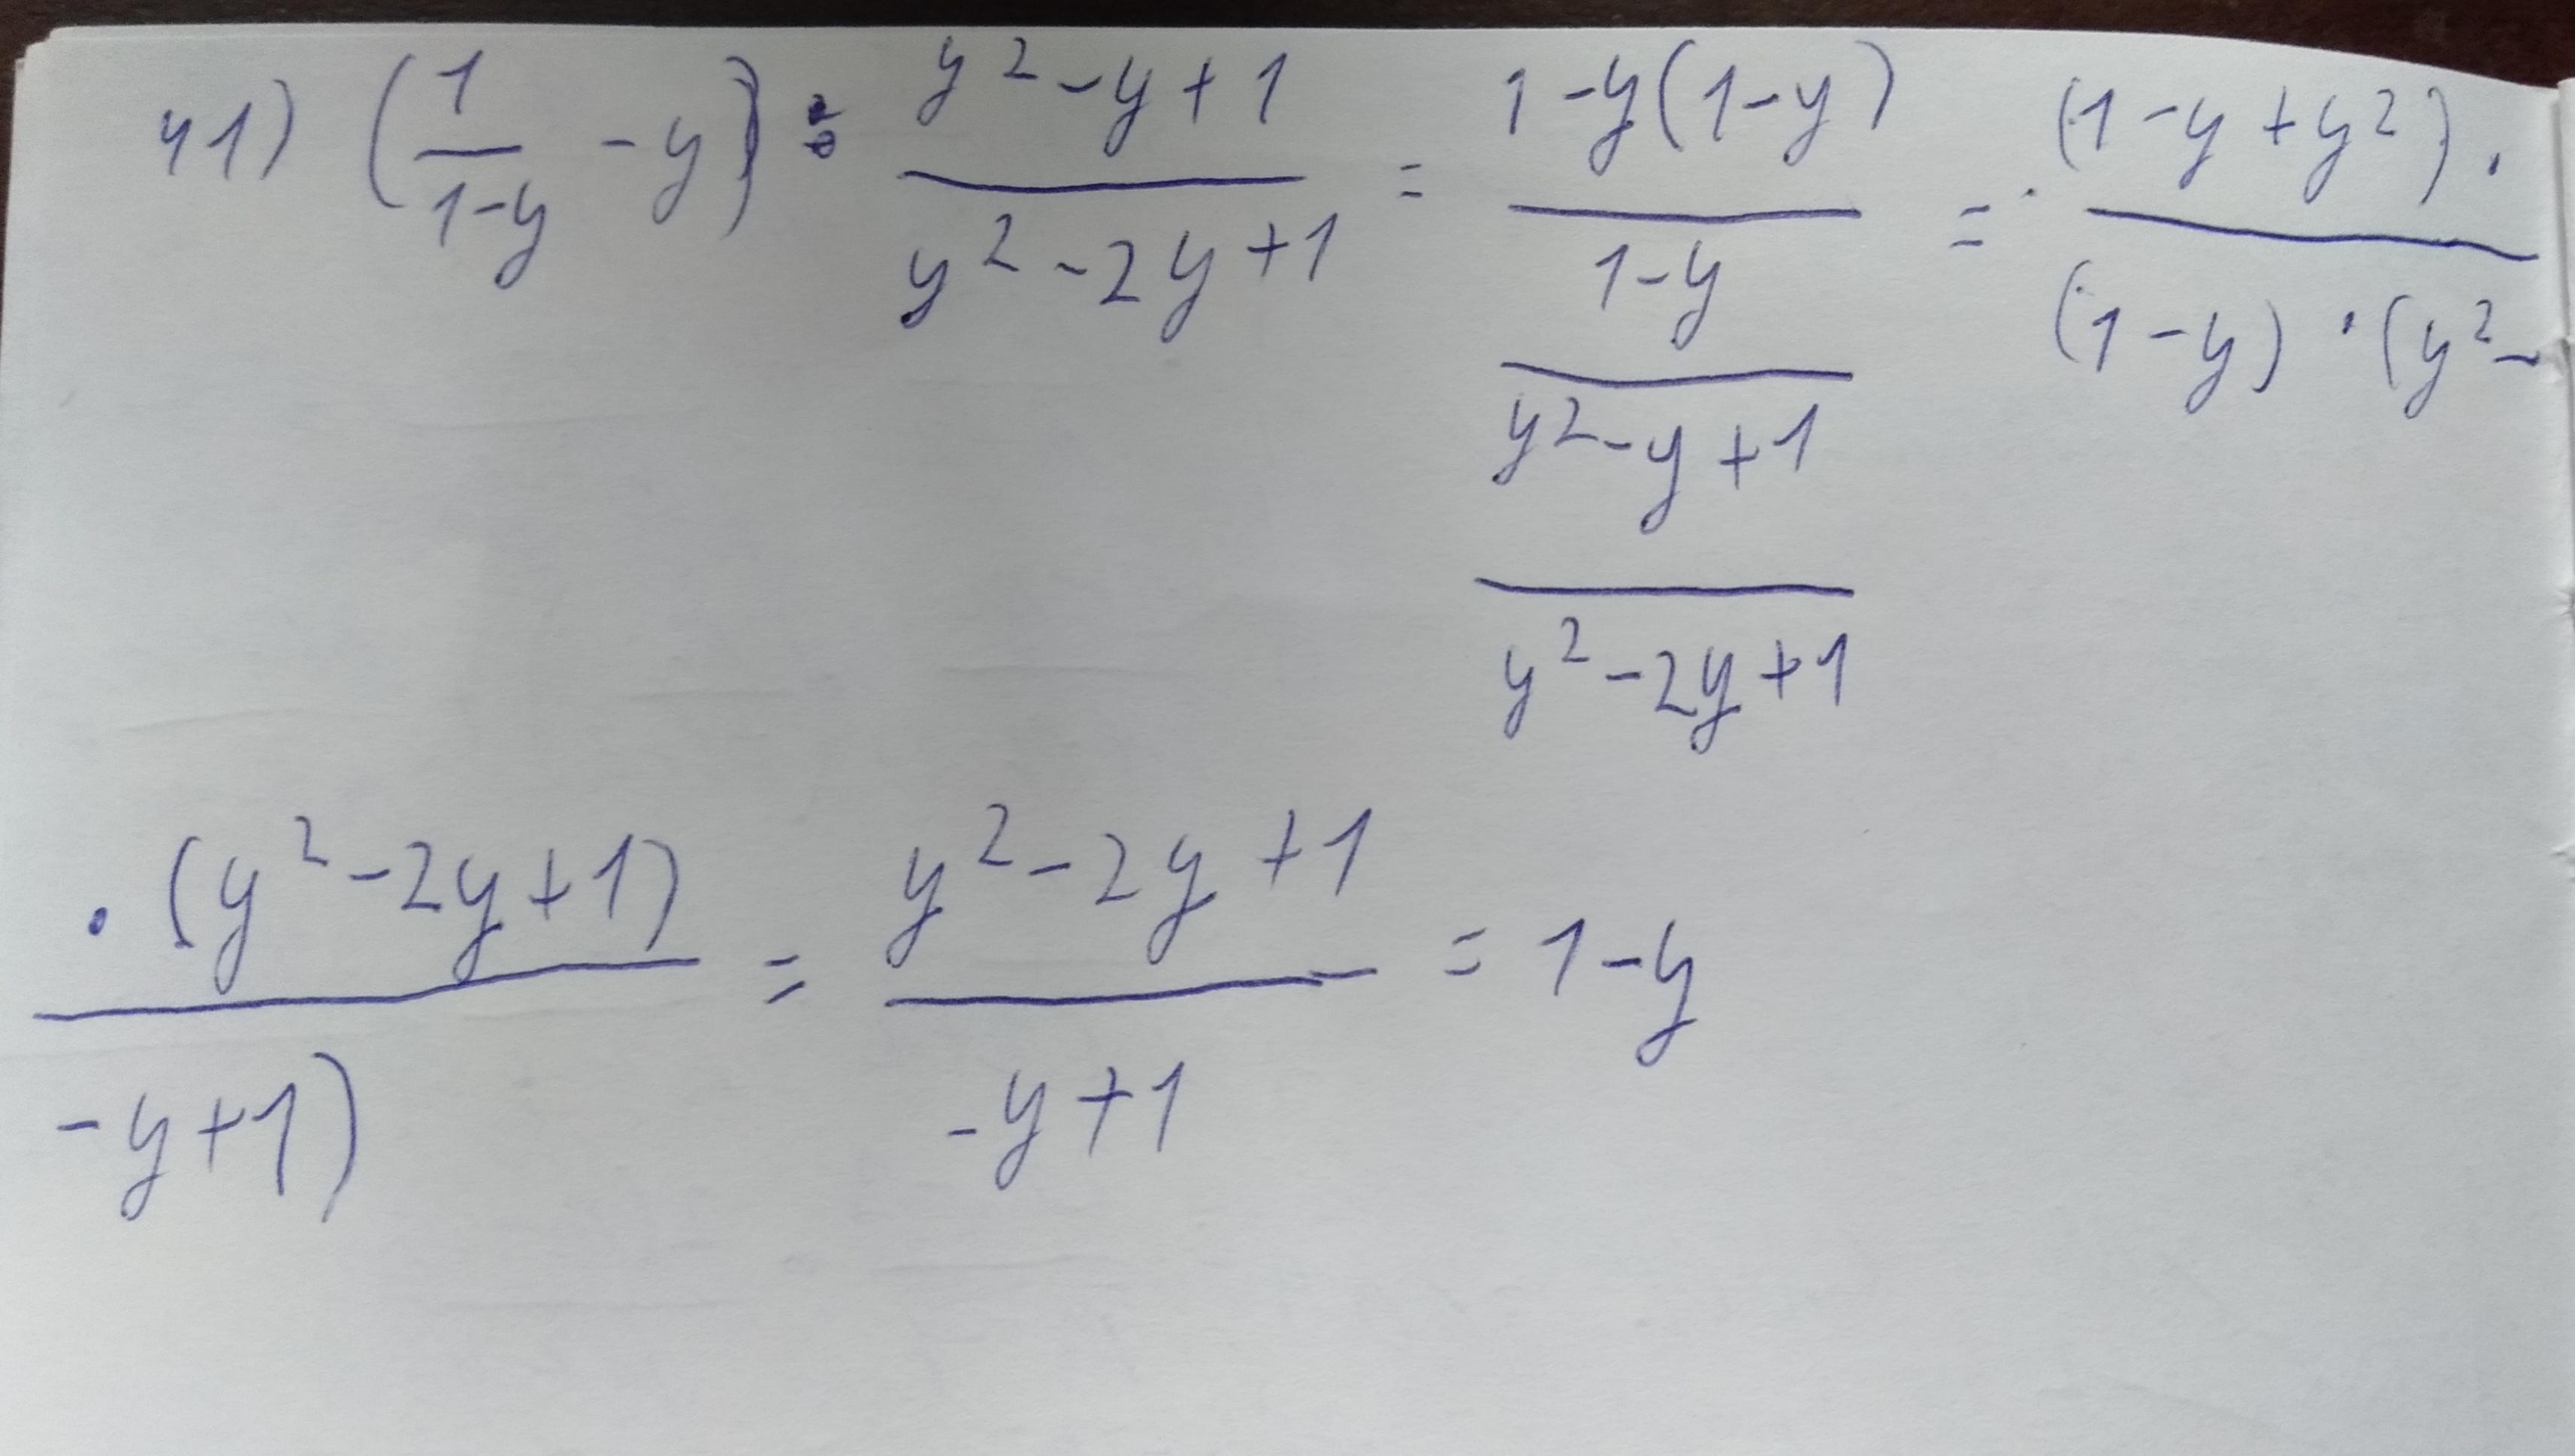 41) (1/(1-y) - y) : (y² - y + 1)/(y² - 2y + 1) = ((1 - y(1 - y))/(1 - y))/((y² - y + 1)/(y² - 2y + 1)) = ((1 - y + y²) ·)/((1 - y) · (y² -
(· (y² - 2y + 1))/(- y + 1)) = (y² - 2y + 1)/(-y + 1) = 1 - y